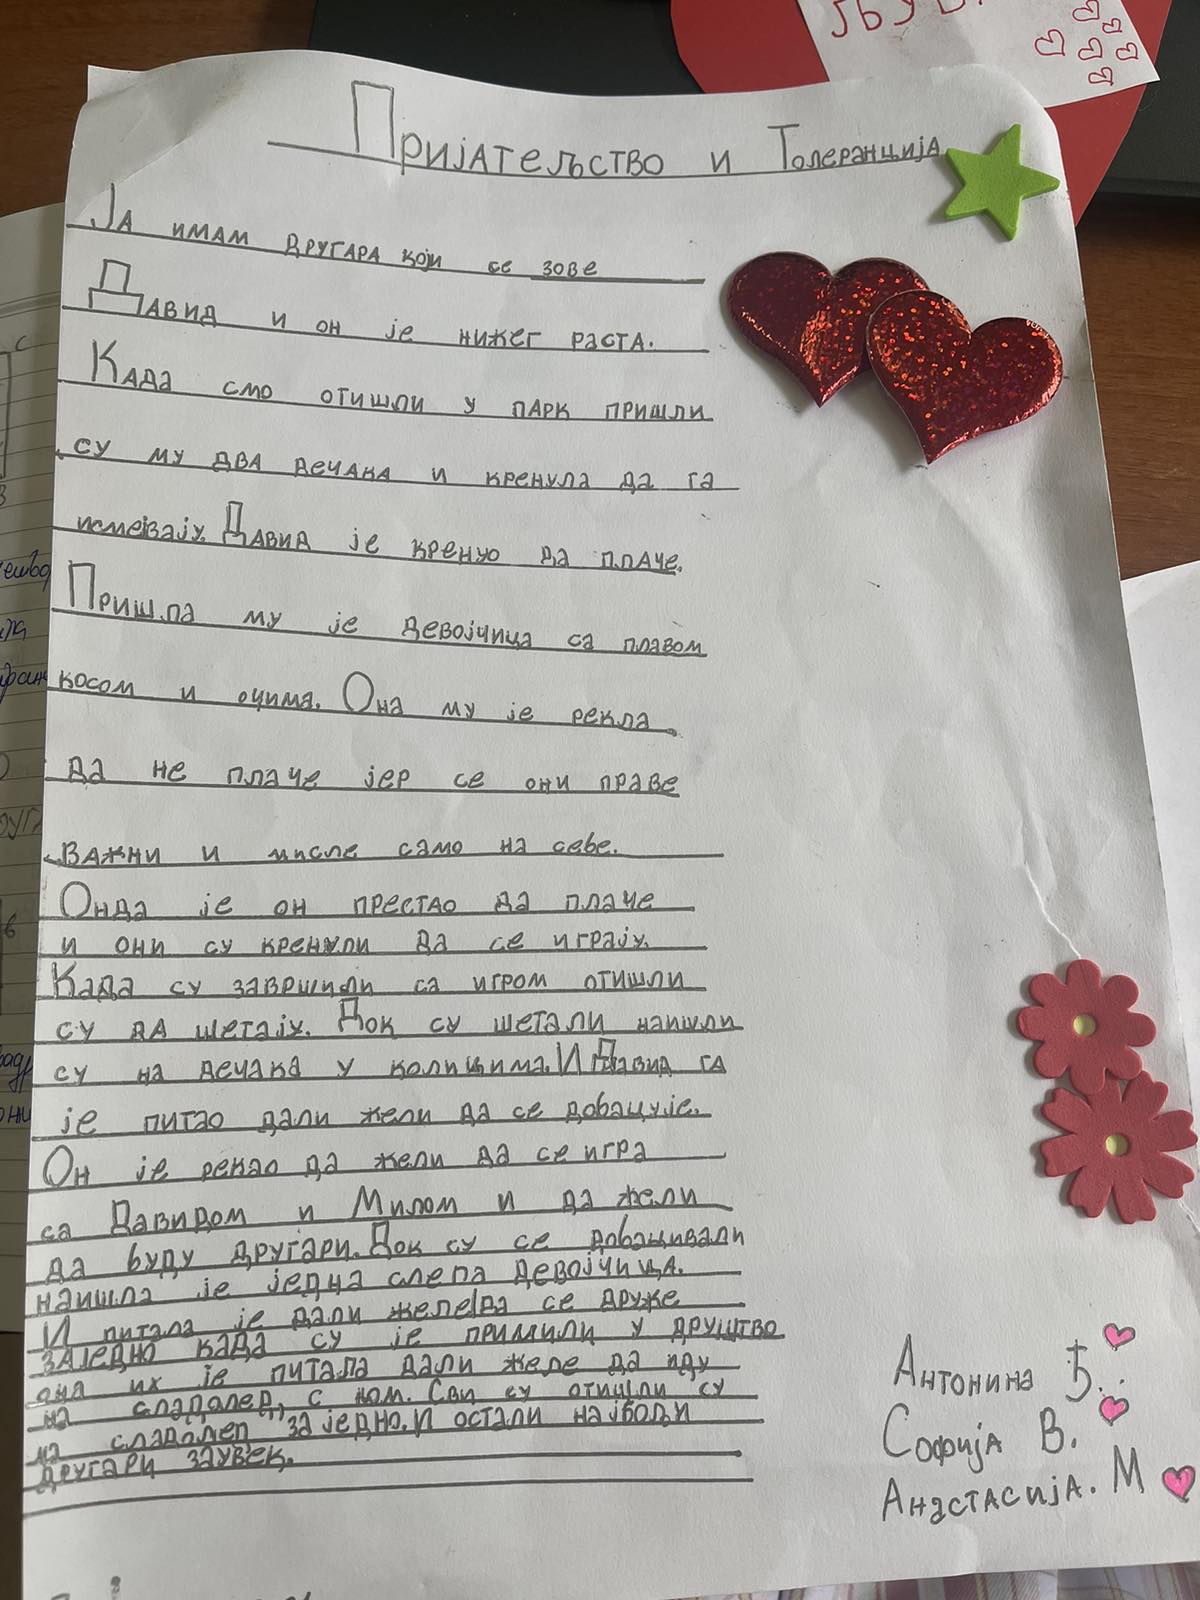 ЉУБ
Пријатељство и Толеранција
Ја имам другара који се зове
Давид и он је нижег раста.
Када смо отишли у парк пришли
су му два дечака и кренула да га
исмејвају. Давид је кренуо да плаче.
Пришла му је девојчица са плавом
косом и очима. Она му је рекла
да не плаче јер се они праве
важни и мисле само на себе.
Онда је он престао да плаче
и они су кренули да се играју.
Када су завршили са игром отишли
су да шетају. Док су шетали наишли
су на дечака у колицима. И Давид га
је питао дали жели да се добацује.
Он је рекао да жели да се игра
са Давидом и Милом и да жели
да буду другари. Док су се добацивали
наишла је једна слепа девојчица.
И питала је дали желе да се друже
заједно када су је примили у друштво
она их је питала дали желе да иду
на сладолед, с њом. Сви су отишли су
на сладолед заједно. И остали најбољи
другари заувек.
Антонина Ђ.
Софија В.
Анастасија. М